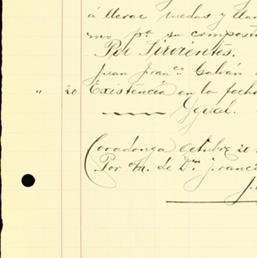 á llevar ruedas y llan
mo pr. su compost
Por Sirvientes.
Juan Franco. Galván
" 20 Existencia en la fecha
Ygual.
Covadonga Octubre 20
Por M. de Dn. Franci
J.